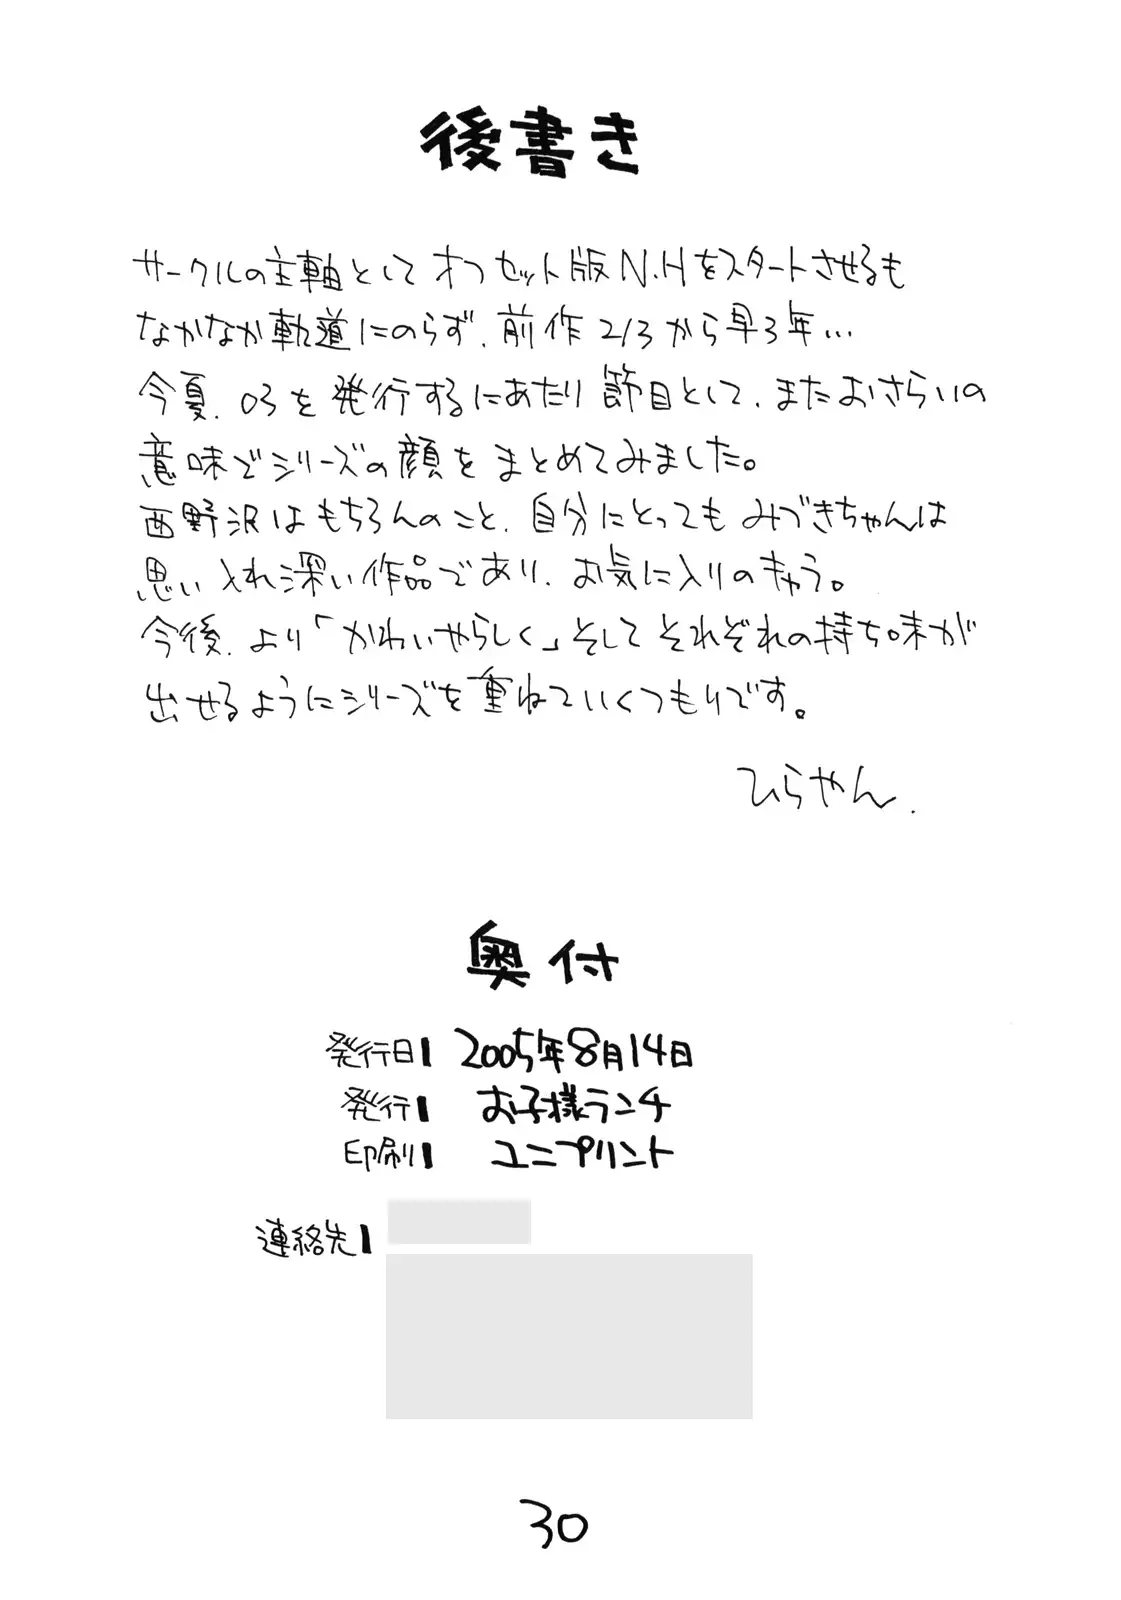 後書き
サークルの主軸として オフセット版N.Hをスタートさせるも
なかなか軌道にのらず、前作2/3から早3年…
今夏、03を発行するにあたり節目として、またおさらいの
意味でシリーズの顔をまとめてみました。
西野沢はもちろんのこと、自分にとってもみづきちゃんは
思い入れ深い作品であり、お気に入りのキャラ。
今後、より「かわいやらしく」そしてそれぞれの持ち味が
出せるようにシリーズを重ねていくつもりです。
ひらやん.
奥付
発行日 2005年8月14日
発行 お子様ランチ
印刷 ユニプリント
連絡先
30